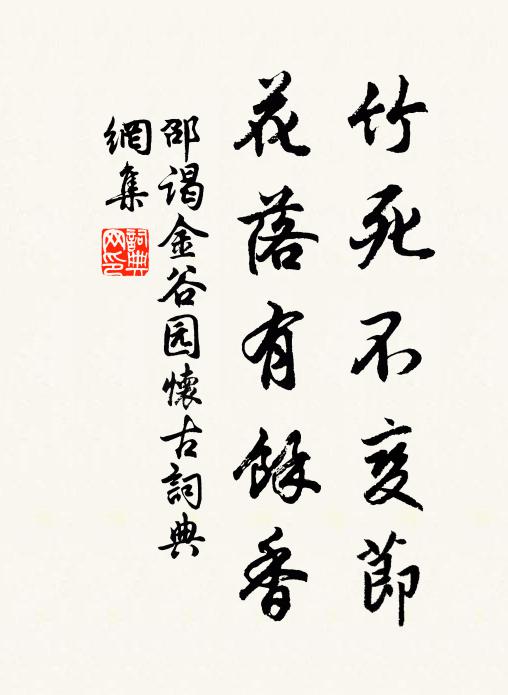 竹死不变節
花落有餘香
邵谒金谷园懷古詞典
網集
詞典网印